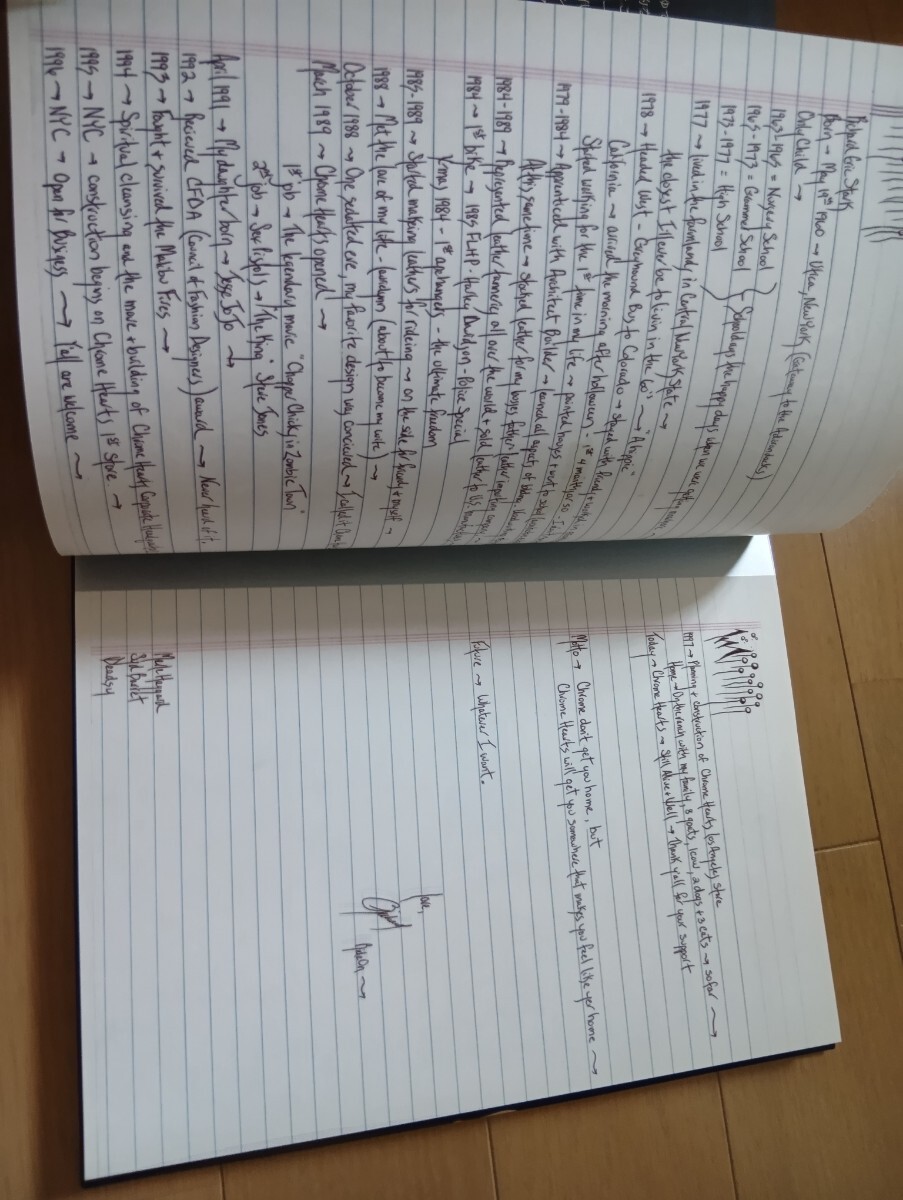 Richard Eric Stark
Born → May 19th 1960 → Utica, New York (Gateway to the Adirondacks)
Only Child →
1963-1965 = Nursery School
1965-1973 = Grammar School
1973-1977 = High School
Schooldays the happy days when we were
1977 → lived in the farmlands in Central New York State →
the closest I'll ever be to livin in the 60's → "A hippie"
1978 → Headed West - Greyhound Bus to Colorado → stayed with friends +
California → arrived the morning after halloween - 1st 4 months or so -
Started working for the 1st time in my life → painted houses + went to school
1979-1984 → Apprenticed with Architect Builder → learned all aspects of
At this same time → Started leather for my buyers father (leather importing company
1984-1989 → Represented leather tannerys all over the world + sold leather to U.S.
1984 → 1st bike → 1985 FLHP - Harley Davidson - Police Special
Xmas 1984 - 1st apehangers - the ultimate freedom
1985-1989 → Started making leathers for rideing → on the side for friends + myself →
1988 → Met the love of my life - laurielynn (about to become my wife) →
October 1988 → One sedated eve, my favorite design was concieved → I called it
March 1989 → Chrome Hearts opened →
1st job → The legendary movie "Chopper Chicks in Zombie Town"
2nd job → Sex Pistols → "The King" Steve Jones
April 1991 → My daughter born → Jesse Jo Jo →
1992 → Recieved CFDA (Council of Fashion Designers) award → Never heard of it.
1993 → Fought + survived the Malibu Fires →
1994 → Spiritual cleansing and the move + building of Chrome Hearts Corporate
1995 → NYC → construction begins on Chrome Hearts 1st Store. →
1996 → NYC → Open for Business → Y'all are welcome →
1997 → Planning + construction of Chrome Hearts Los Angeles store
Home → On the ranch with my family, 8 goats, 1 cow, 2 dogs + 3 cats → so far →
Today → Chrome Hearts → Still Alive + Well → Thank y'all for your support
Motto → Chrome don't get you home, but
Chrome Hearts will get you somewhere that makes you feel like yer home →
Future → Whatever I want.
Love,
Richard
Merle Haggard
Syd Barret
Deadsy